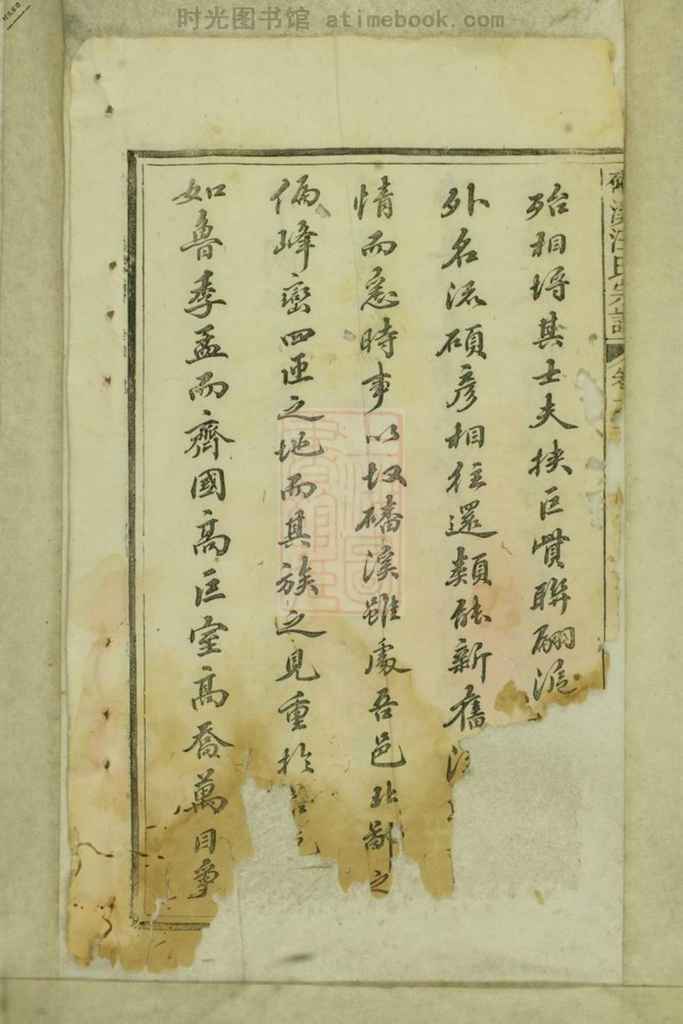 时光图书馆 atimebook.com
溪汪氏宗譜
殆相埒其士夫挾巨貲聯翩滬
外名流碩彥相往還類能新舊
情而急時事以故磻溪雖處吾邑北鄙之
偏峰巒四匝之地而其族之見重於
如魯季孟而齊國高巨室高喬萬目